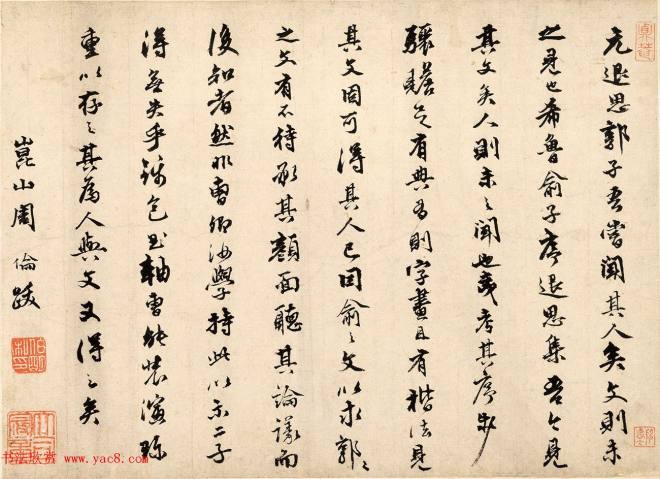 元退思郭子吾嘗聞其人矣文則未
之見也希魯俞子序退思集吾今見
其文矣人則未之聞也夷考其序步
驟蟾足有典吾則字畫且有楷法見
其文固可得其人已因俞之文以求郭之
之文有不待承其顏面聽其論議而
後知者然非曹卿汝學持此以示二子
得無失乎錦包玉軸曹能裝演珍
重以存之其為人與文又得之矣
崑山周倫跋
书法欣赏 www.yac8.com